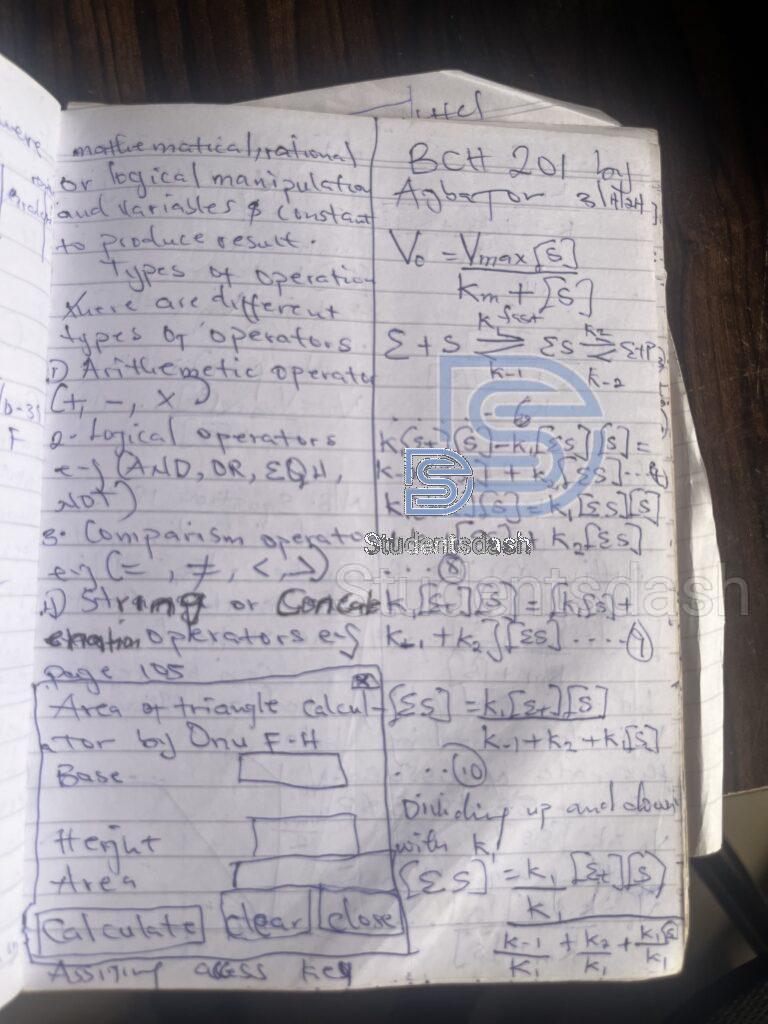 mathematical, rational
or logical manipulation
and variables & constant
to produce result.
Types of operation
there are different
types of operators
1) Arithemetic operator
(+, -, ×)
2- Logical operators
e-g (AND, OR, EQU,
NOT)
3. Comparism operator
e-g (=, ≠, <, >)
4) String or Concate
enation operators e-g
page 105
Area of triangle calcul-
ator by Onu F-H
Base
Height
Area
Calculate clear close
Assiting access key
BCH 201 by
Agbator
V₀ = Vmax[S]
Km + [S]
Σ + S ⇌ ΣS ⇌ Σ+P
k₁ fast k₂
k-1 k-2
..... 6
k[Σt][S] - k₁[ΣS][S] =
+ k₂[ΣS] ...
= k₁[ΣS][S]
+ k₂[ΣS]
(8)
k₁[Σt][S] = [k₁[S] +
k-1 + k₂][ΣS] ..... (9)
[ΣS] = k₁[Σt][S]
k-1 + k₂ + k₁[S]
.... (10)
Dividing up and down
with k₁
[ΣS] = k₁/k₁ [Σt][S]
k-1/k₁ + k₂/k₁ + k₁[S]/k₁
Studentsdash
Studentsdash